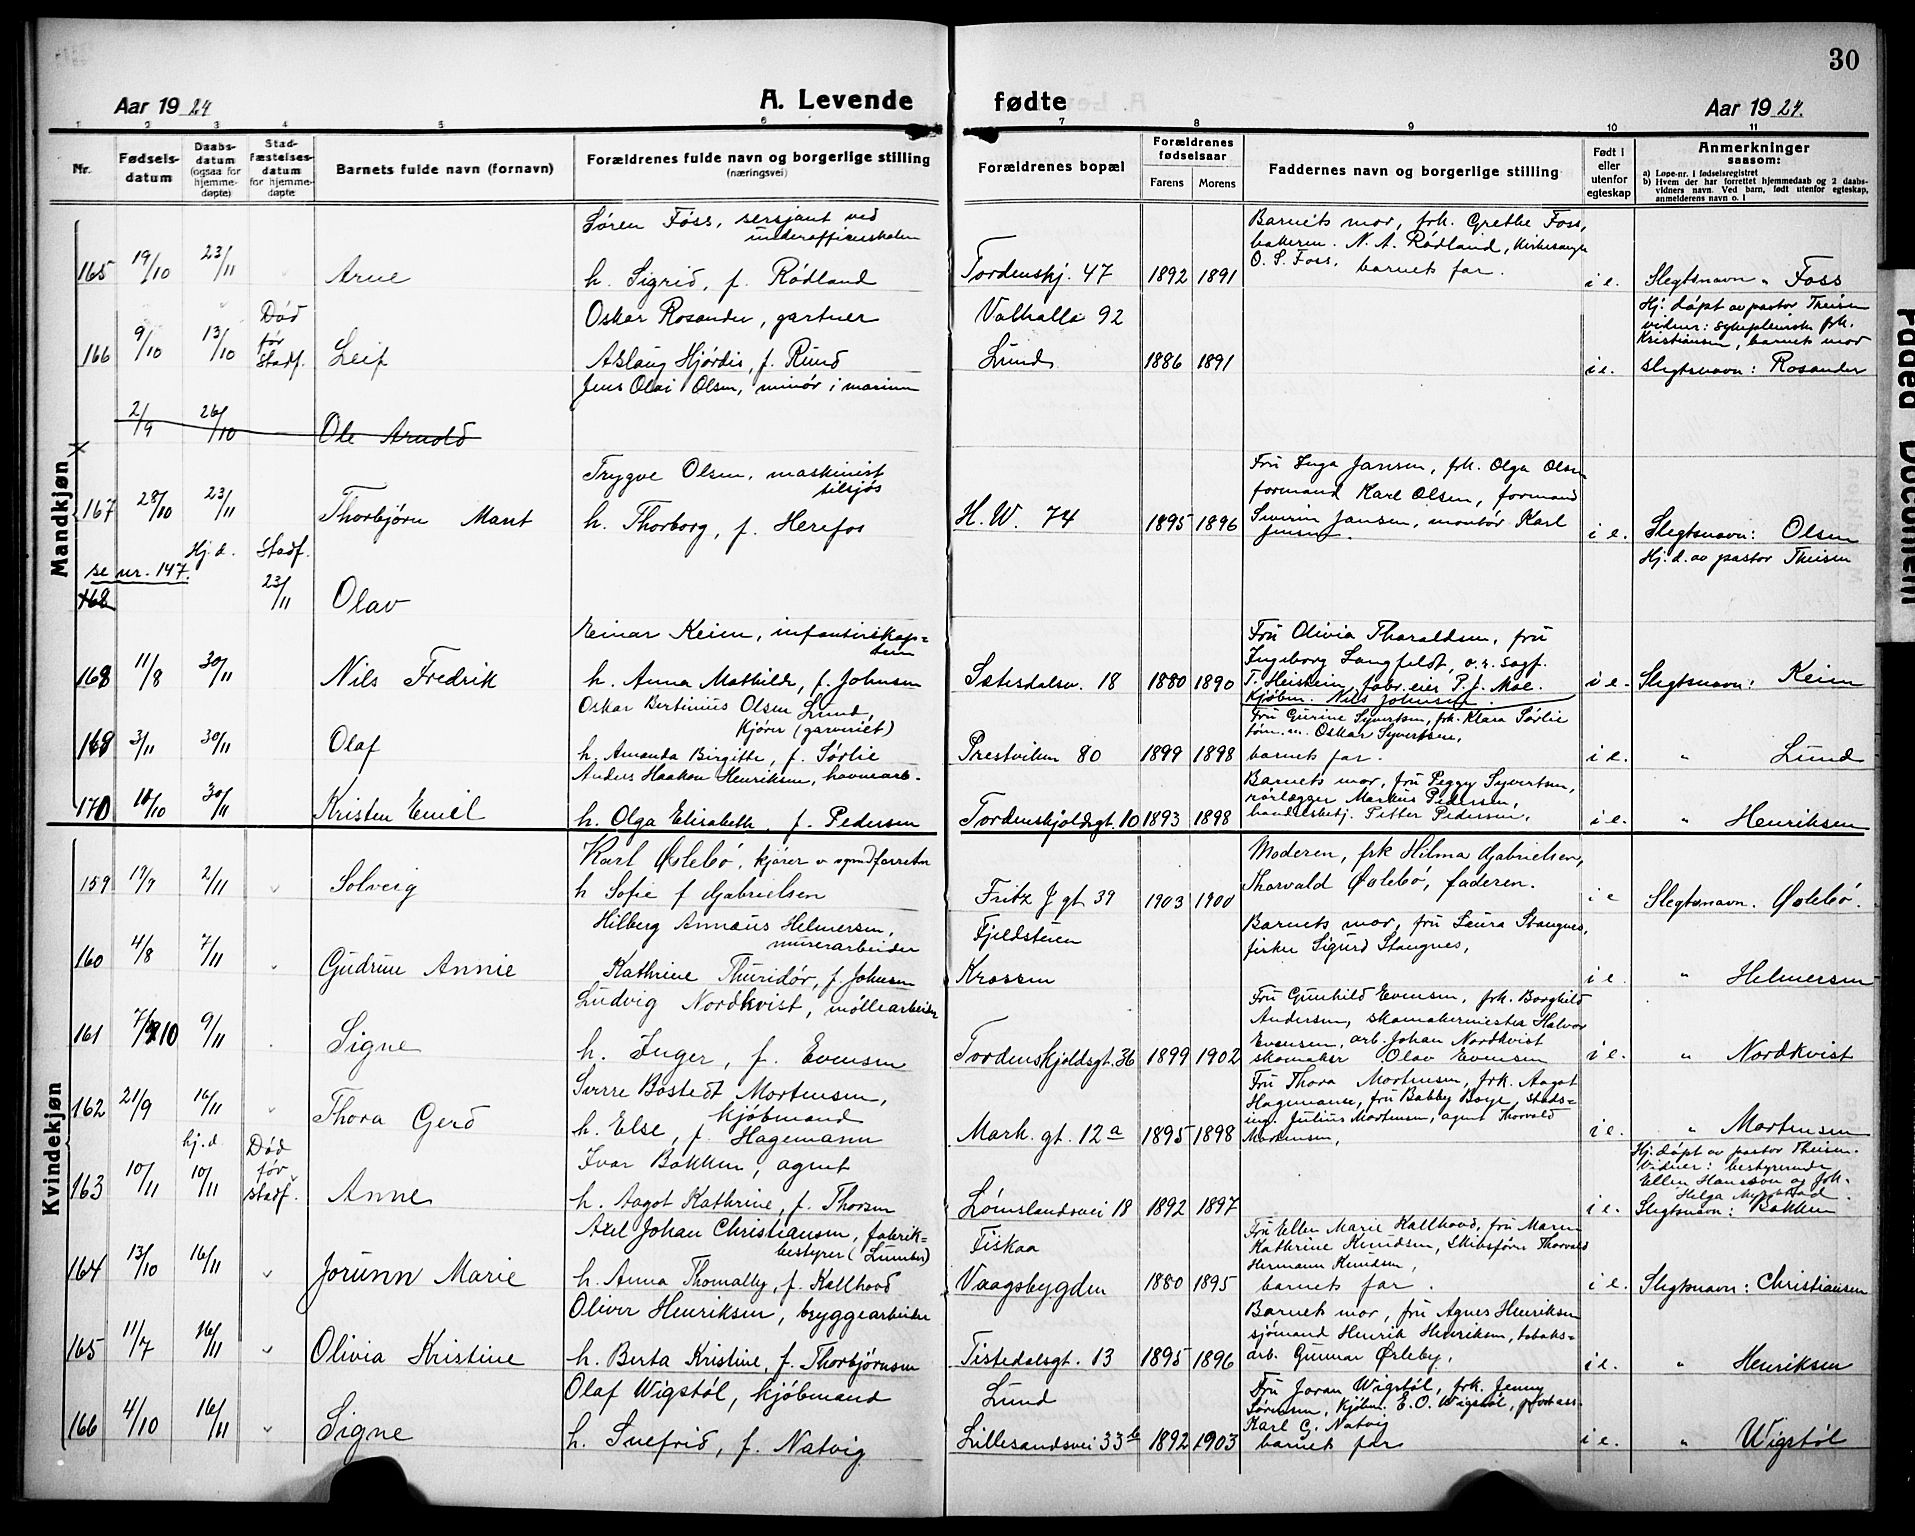 30
Aar 1924
A. Levende fødte
Aar 1924.
1 2 3 4 5 6 7 8 9 10 11
Nr.
Fødsels-datum
Daabs-datum (ogsaa for hjemme-døpte)
Stad-fæstelses-datum for hjemme-døpte
Barnets fulde navn (fornavn)
Forældrenes fulde navn og borgerlige stilling
(næringsvei)
Forældrenes bopæl
Forældrenes fødselsaar
Farens Morens
Faddernes navn og borgerlige stilling
Født i eller utenfor egteskap
Anmerkninger
saasom:
a) Løpe-nr. i fødselsregistret
b) Hvem der har forrettet hjemmedaab og 2 daabs-
vidners navn. Ved barn, født utenfor egteskap,
anmelderens navn o. l
Mandkjøn
165 19/10 23/11 Arne
Søren Foss, sersjant ved
underofficerskolen
h. Sigrid, f. Rødland
Tordenskj. 47 1892 1891
Barnets mor, frk. Grethe Foss,
bakerm. N. A. Rødland, kirkesanger
O. S. Foss, barnets far.
i e. Slegtsnavn " Foss
166 9/10 13/10 Død før stadf. Leif
Oskar Rosander, gartner
Aslaug Hjørdis, f. Rund
Valhalla 92
Lund 1886 1891
i e.
Hj. døpt av pastor Theisen
vidner: sykepleierske frk.
Kristiansen, barnets mor
slegtsnavn: Rosander
2/9 26/10 Ole Arnold
Jens Olai Olsen, minør i marinen
167 28/10 23/11 Thorbjørn Marit
Trygve Olsen, maskinist
tilsjøs
h. Thorborg, f. Herefos
H. W. 74 1895 1896
Fru Inga Jansen, frk. Olga Olsen
formand Karl Olsen, formand
Severin Jansen, montør Karl
Jensen.
i e. Slegtsnavn: Olsen
se nr. 147.
168 Hj. d. Stadf. 23/11 Olav
Hj. d. av pastor Theisen
168 11/8 30/11 Nils Fredrik
Reinar Keim, infanterikap=
tein
h. Anna Mathilde, f. Johnsen
Setesdalsv. 18 1880 1890
Fru Olivia Tharaldsen, fru
Ingeborg Langfeldt, o.r. sagf.
T. Heisteim, fabr.eier P. J. Moe.
Kjøbm. Nils Johnsen.
i e. Slegtsnavn: Keim
169 3/11 30/11 Olaf
Oskar Bertinius Olsen Lund,
kjører (garveriet)
h. Amanda Birgitte, f. Sørlie
Prestviken 80 1899 1898
Fru Gurine Syvertsen, frk. Klara Sørlie
tøm.m. Oskar Syvertsen,
barnets far.
i e. " Lund
170 10/10 30/11 Kristen Emil
Anders Haakon Henriksen, havnearb.
h. Olga Elisabeth, f. Pedersen
Tordenskjoldsgt. 10 1893 1898
Barnets mor, fru Peggy Syvertsen,
rørlægger Markus Pedersen,
handelsbetj. Petter Pedersen,
i e. " Henriksen
Kvindekjøn
159 17/7 2/11 Solveig
Karl Øslebø, kjører
h Sofie f Gabrielsen
Fritz J gt 39 1903 1900
Moderen, frk Hilma Gabrielsen,
Thorvald Øslebø, faderen.
i e Slegtsnavn. Øslebø.
160 4/8 7/11 Gudrun Annie
Hilberg Annæus Helmersen,
murerarbeider
Kathrine Thuridør, f. Johnsen
Fjeldstuen
Krossen
Barnets mor, fru Laura Stangnes,
fisker Sigurd Stangnes,
i e. " Helmersen
161 7/10 9/11 Signe
Ludvig Nordkvist, møllearbeider
h. Inger, f. Evensen
Tordenskjoldsgt. 36 1899 1902
Fru Gunhild Evensen, frk. Borghild
Andersen, skomakermester Halvor
Evensen, arb. Johan Nordkvist
skomaker Olav Evensen
i e. " Nordkvist
162 21/9 16/11 Thora Gerd
Sverre Bostedt Mortensen,
kjøbmand
h. Else, f. Hagemann
Mark. gt. 12a 1895 1898
Fru Thora Mortensen, frk. Aagot
Hagemann, fru Babby Boye, stads=
ing. Julius Mortensen, agent Thorvald
Mortensen,
i e. " Mortensen
163 10/11 hj. d. 10/11 Død før stadf. Anne
Ivar Bakken, agent
h. Aagot Kathrine, f. Thorsen
Lømslandsvei 18 1892 1897
i e.
Hj. døpt av pastor Theisen.
Vidner: bestyrerinde
Ellen Hansson og frk.
Slegtsnavn: Bakken
164 13/10 16/11 Jorunn Marie
Axel Johan Christiansen, fabrik=
bestyrer (Lumber)
h. Anna Thomally, f. Kallhovd
Fiskaa
Vaagsbygden 1880 1895
Fru Ellen Marie Kallhovd, fru Maren
Kathrine Knudsen, skibsfører Thorvald
Hermann Knudsen,
barnets far.
i e. Slegtsnavn: Christiansen
165 11/7 16/11 Olivia Kristine
Oliver Henriksen, bryggearbeider
h. Berta Kristine, f. Thorbjørnsen
Tistedalsgt. 13 1895 1896
Barnets mor, fru Agnes Henriksen
sjømand Henrik Henriksen, tobaks=
arb. Gunnar Ørleby,
i e. " Henriksen
166 4/10 16/11 Signe
Olaf Wigstøl, kjøbmand
h. Snefrid, f. Natvig
Lund
Lillesandsvei 33 b 1892 1903
Fru Joran Wigstøl, frk. Jenny
Sørensen, kjøbm. E. O. Wigstøl,
Karl G. Natvig
barnets far
i e. " Wigstøl